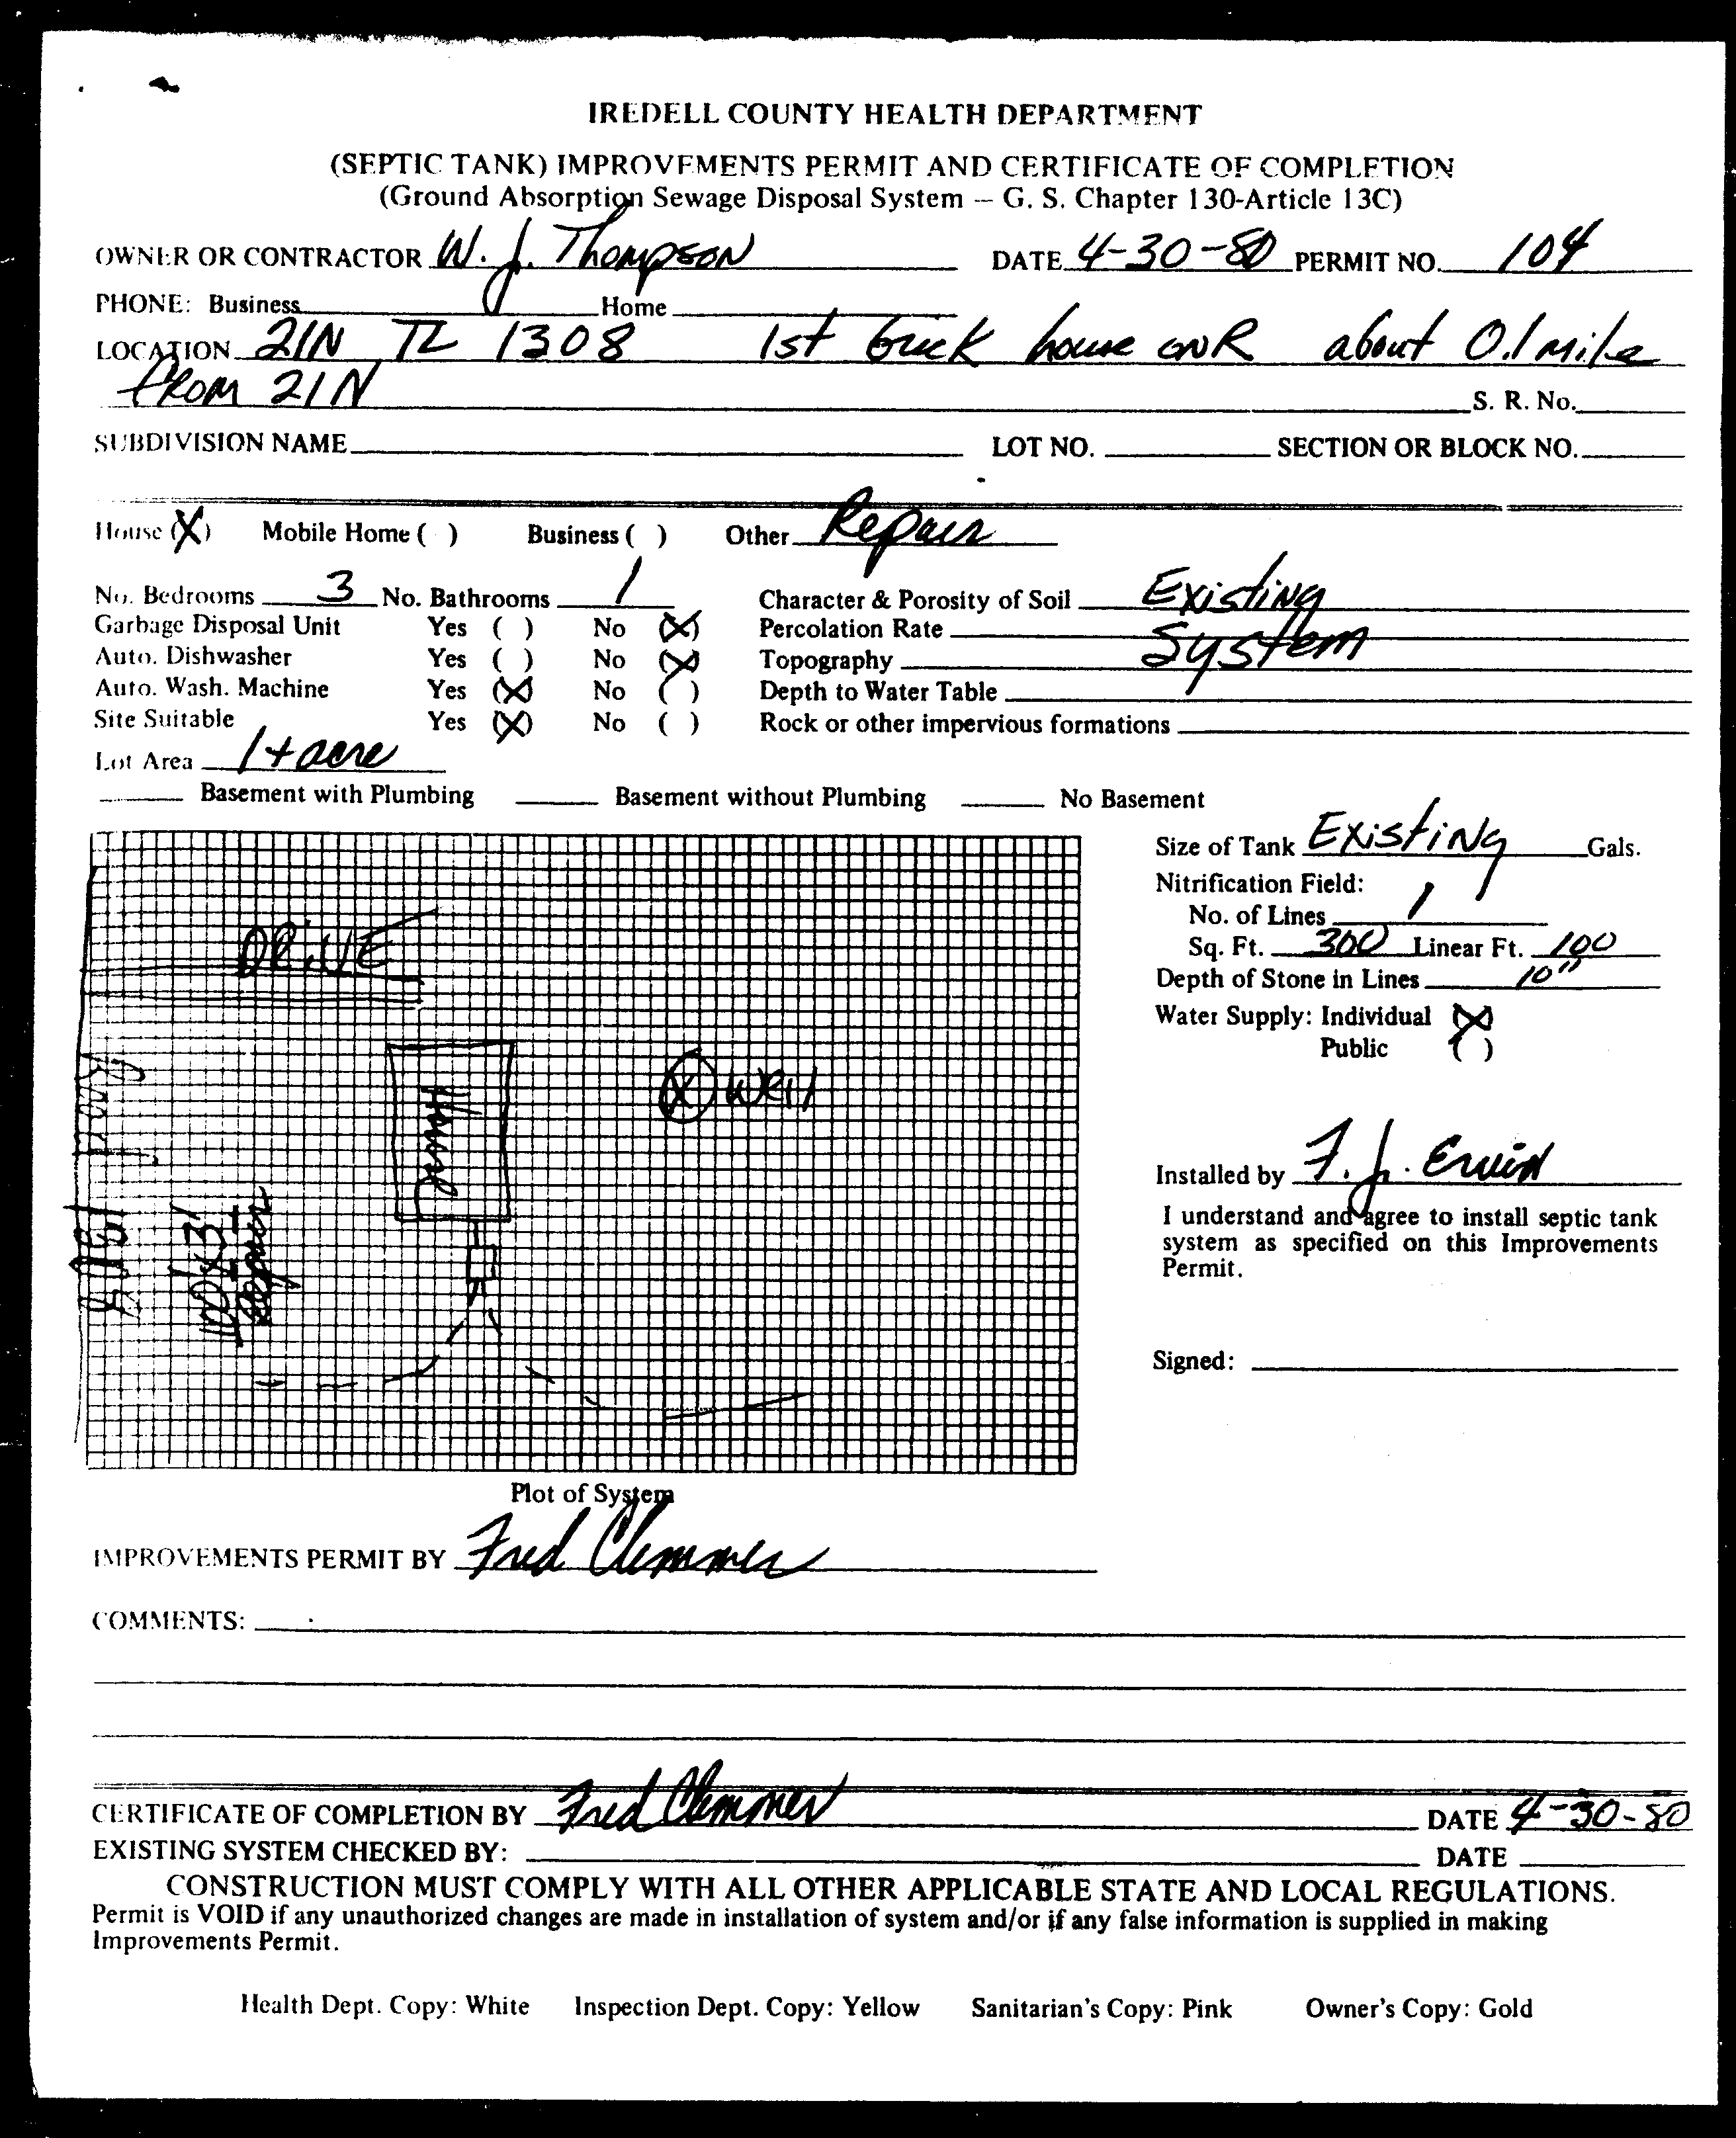 IREDELL COUNTY HEALTH DEPARTMENT
(SEPTIC TANK) IMPROVEMENTS PERMIT AND CERTIFICATE OF COMPLETION
(Ground Absorption Sewage Disposal System — G. S. Chapter 130-Article 13C)
OWNER OR CONTRACTOR W. J. Thompson DATE 4-30-80 PERMIT NO. 104
PHONE: Business Home
LOCATION 21N TL 1308 1st brick house on R about 0.1 mile
from 21N S. R. No.
SUBDIVISION NAME LOT NO. SECTION OR BLOCK NO.
House (X) Mobile Home ( ) Business ( ) Other Repair
No. Bedrooms 3 No. Bathrooms 1 Character & Porosity of Soil Existing
Garbage Disposal Unit Yes ( ) No (X) Percolation Rate System
Auto. Dishwasher Yes ( ) No (X) Topography
Auto. Wash. Machine Yes (X) No ( ) Depth to Water Table
Site Suitable Yes (X) No ( ) Rock or other impervious formations
Lot Area 1+ acre
Basement with Plumbing Basement without Plumbing No Basement
Size of Tank Existing Gals.
Nitrification Field:
No. of Lines 1
Sq. Ft. 300 Linear Ft. 100
Depth of Stone in Lines 10"
Water Supply: Individual (X)
Public ( )
DRIVE
House
(X) Well
100x3'
Repair
Installed by F. J. Ervin
I understand and agree to install septic tank
system as specified on this Improvements
Permit.
Signed:
Plot of System
IMPROVEMENTS PERMIT BY Fred Clemmer
COMMENTS:
CERTIFICATE OF COMPLETION BY Fred Clemmer DATE 4-30-80
EXISTING SYSTEM CHECKED BY: DATE
CONSTRUCTION MUST COMPLY WITH ALL OTHER APPLICABLE STATE AND LOCAL REGULATIONS.
Permit is VOID if any unauthorized changes are made in installation of system and/or if any false information is supplied in making
Improvements Permit.
Health Dept. Copy: White Inspection Dept. Copy: Yellow Sanitarian's Copy: Pink Owner's Copy: Gold